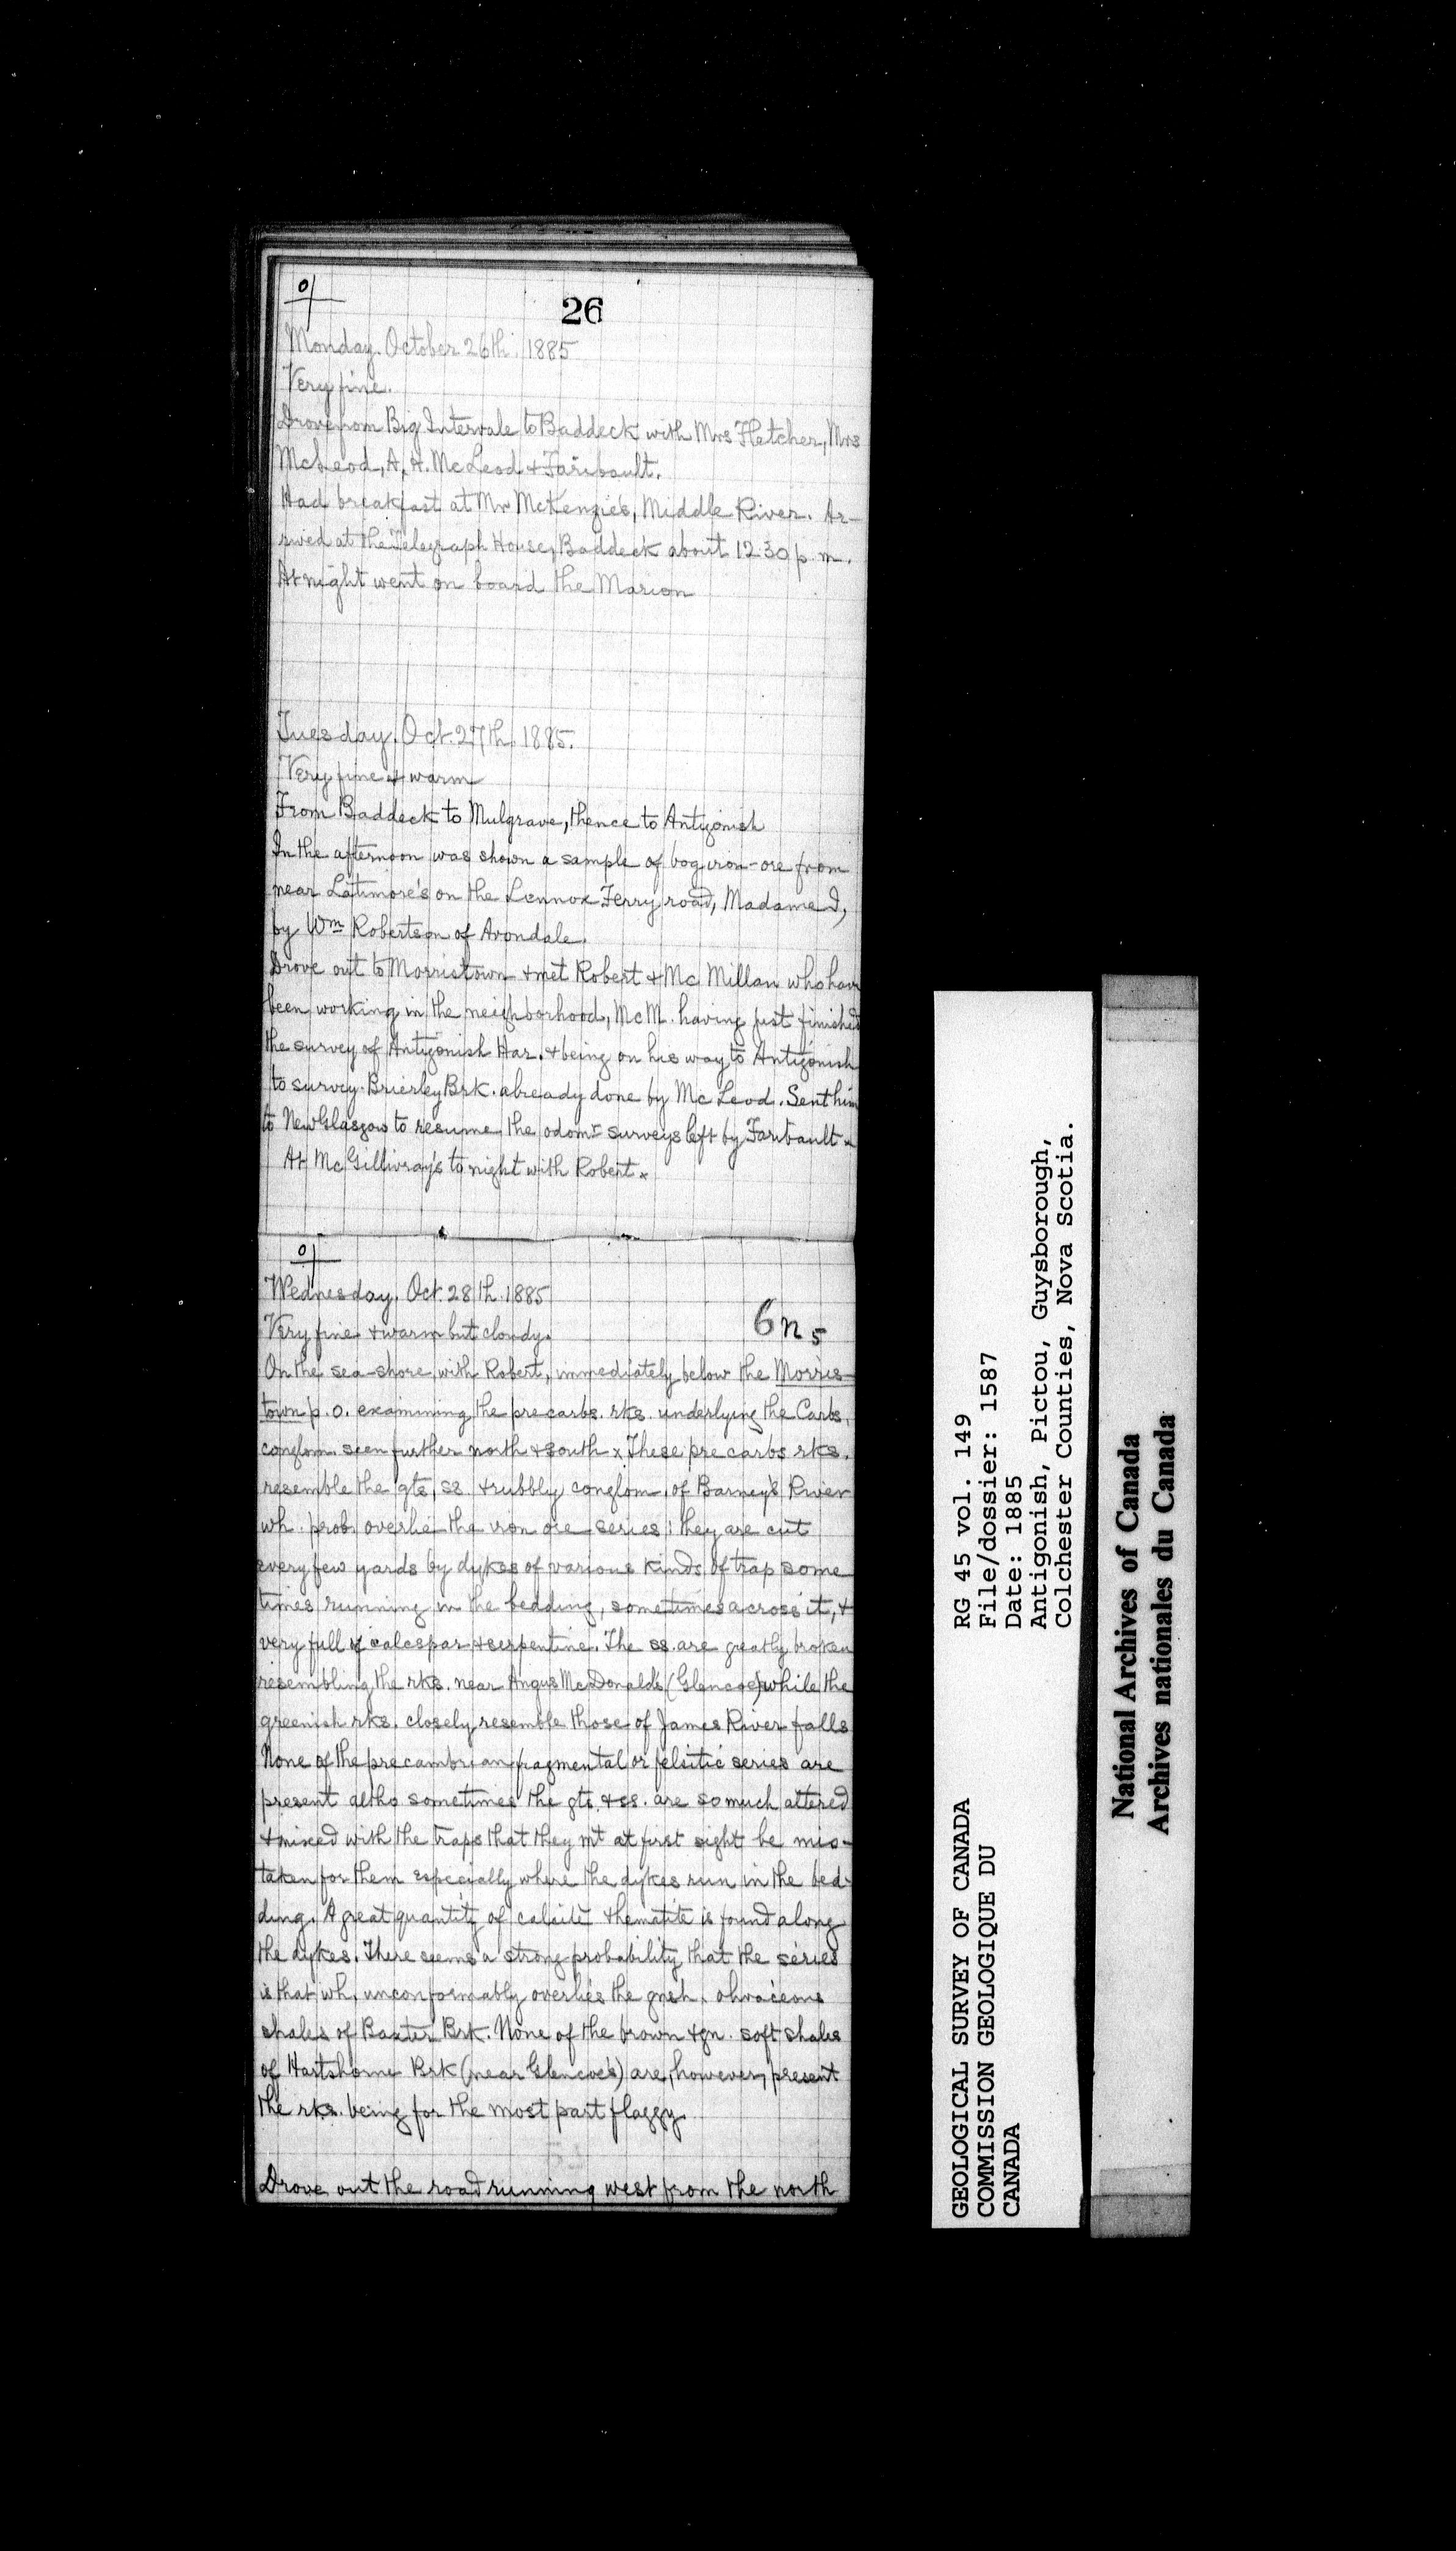 26
Monday. October 26th. 1885
Very fine.
Drove from Big Intervale to Baddeck with Mrs Fletcher, Mrs
McLeod, A. A. McLeod + Faribault.
Had breakfast at Mr McKenzie's, Middle River. Ar-
rived at the Telegraph House, Baddeck about 12.30 p.m.
At night went on board the Marion
Tuesday. Oct. 27th. 1885.
Very fine + warm
From Baddeck to Mulgrave, thence to Antigonish
In the afternoon was shown a sample of bog iron-ore from
near Latimore's on the Lennox Ferry road, Madame I,
by Wm Robertson of Avondale.
Drove out to Morristown + met Robert + McMillan who have
been working in the neighborhood, McM. having just finished
the survey of Antigonish Har. + being on his way to Antigonish
to survey Brierley Brk. already done by McLeod. Sent him
to New Glasgow to resume the odomr surveys left by Faribault x
At McGillivray's to night with Robert x
Wednesday. Oct. 28th. 1885
6n5
Very fine + warm but cloudy.
On the sea-shore with Robert, immediately below the Morris-
town p.o. examining the precarb. rks. underlying the Carb.
conglom. seen further north + south x These precarb rks.
resemble the qts, ss. + rubbly conglom. of Barney's River
wh. prob. overlie the iron ore series: they are cut
every few yards by dykes of various kinds of trap some
times running in the bedding, sometimes across it, +
very full of calcspar + serpentine. The ss. are greatly broken
resembling the rks. near Angus McDonald's (Glencoe) while the
greenish rks. closely resemble those of James River falls
None of the precambrian fragmental or felsitic series are
present altho sometimes the qts. + ss. are so much altered
+ mixed with the traps that they mt at first sight be mis-
taken for them especially where the dykes run in the bed-
ding. A great quantity of calcite + hematite is found along
the dykes. There seems a strong probability that the series
is that wh. unconformably overlies the gnsh. olivaceous
shales of Baxter Brk. None of the brown + gn. soft shales
of Hartshorne Brk (near Glencoe's) are, however, present
the rks. being for the most part flaggy
Drove out the road running west from the north
GEOLOGICAL SURVEY OF CANADA
COMMISSION GEOLOGIQUE DU
CANADA
RG 45 vol. 149
File/dossier: 1587
Date: 1885
Antigonish, Pictou, Guysborough,
Colchester Counties, Nova Scotia.
National Archives of Canada
Archives nationales du Canada